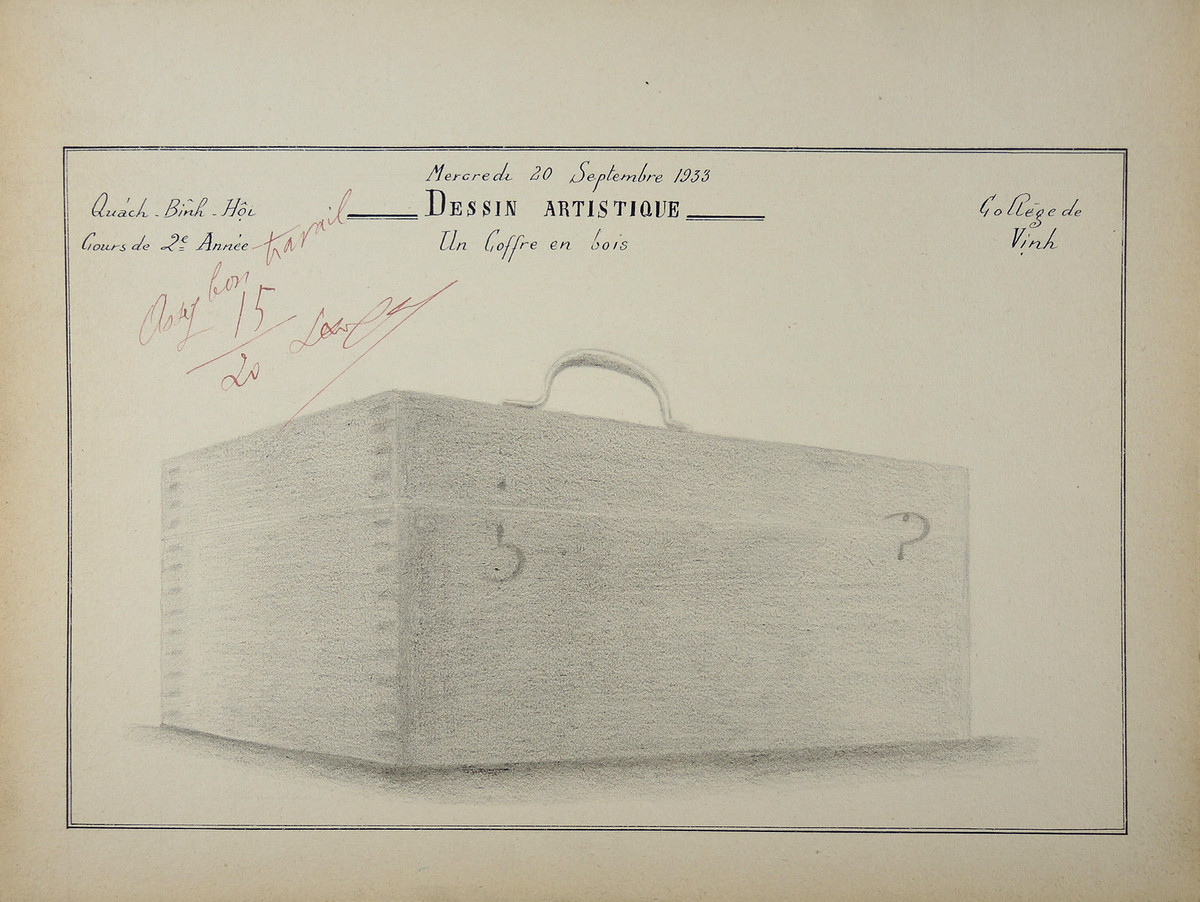 Mercredi 20 Septembre 1933
Quách-Bình-Hội
DESSIN ARTISTIQUE
Collège de
Cours de 2e Année
Un Coffre en bois
Vinh
Assez bon travail
15
20